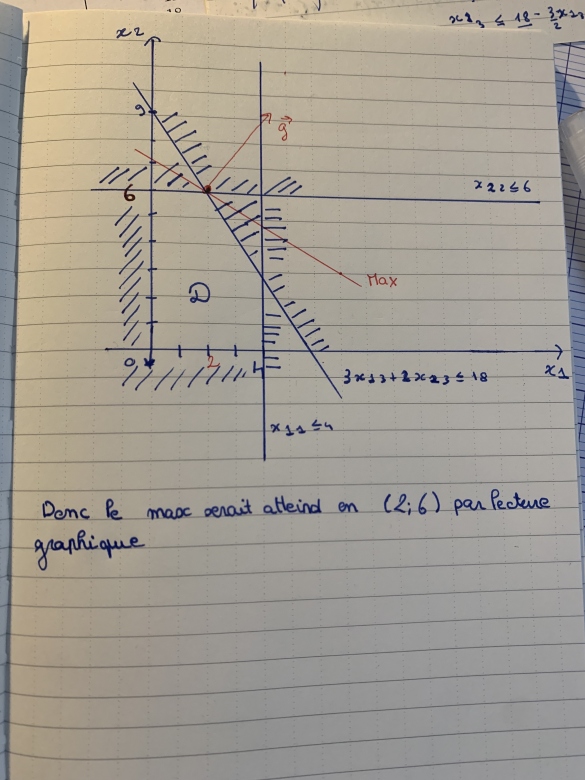 x2₃ ≤ 18 - 3x1₃
2
x2
9
g
6
x2₂ ≤ 6
D
Max
0
2
4
x1
3x1₃ + 2x2₃ ≤ 18
x1₁ ≤ 4
Donc le max serait atteind en (2;6) par lecture
graphique